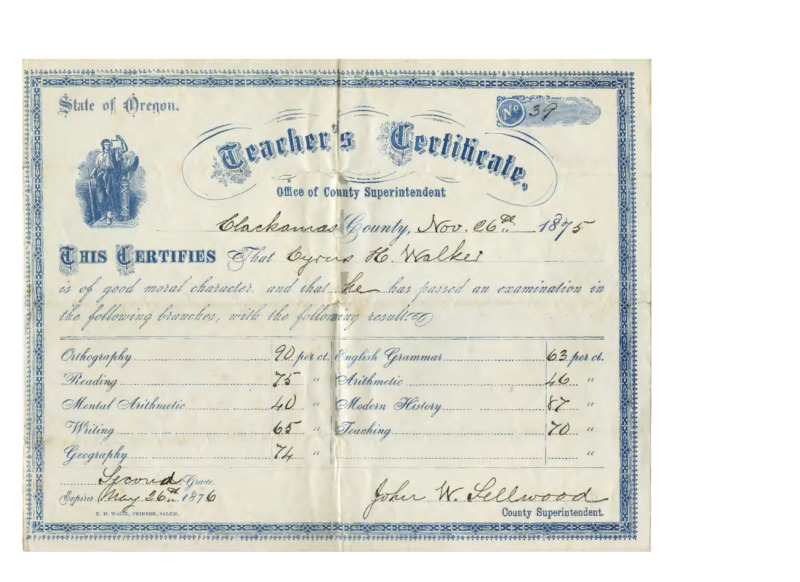 State of Oregon.
No 39
Teacher's Certificate,
Office of County Superintendent
Clackamas County, Nov. 26th 1875
THIS CERTIFIES That Cyrus H. Walker
is of good moral character and that he has passed an examination in
the following branches, with the following result:
Orthography 90 per ct. English Grammar 63 per ct.
Reading 75 " Arithmetic 46 "
Mental Arithmetic 40 " Modern History 87 "
Writing 65 " Teaching 70 "
Geography 74 " "
Second Grade.
Expires May 26th 1876
John W. Sellwood
E. M. WAITE, PRINTER, SALEM.
County Superintendent.